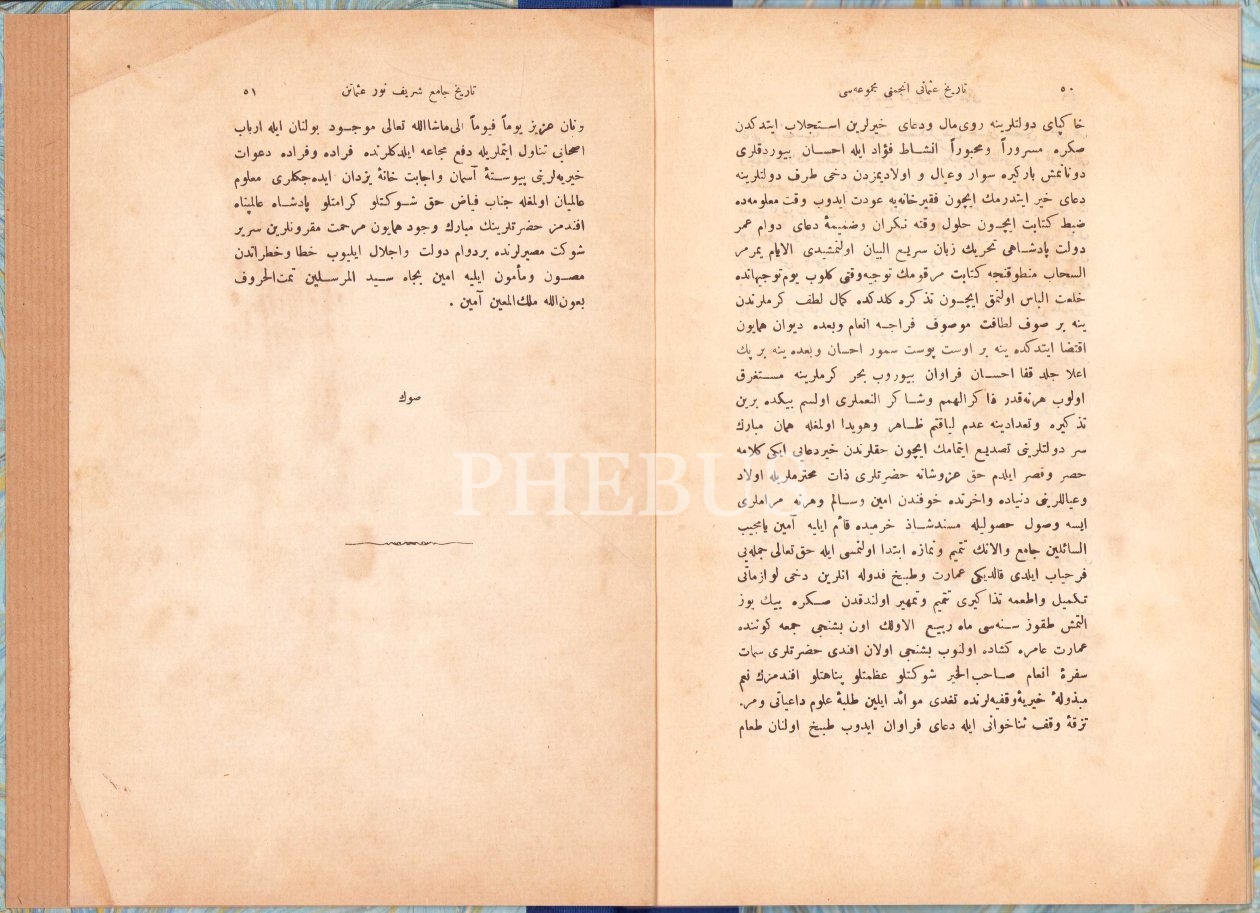 ٥٠
تاریخ عثمانی انجمنی مجموعه‌سی
خاکپای دولتلرینه روی‌مال ودعای خیرلرین استجلاب ایتدکدن
صکره مسروراً ومحبوراً انشاط فؤاد ایله احسان بیوردقلری
دونانمش بارکیره سوار وعیال و اولادیمزدن دخی طرف دولتلرینه
دعای خیر ایتدرمك ایچون فقیرخانه‌یه عودت ایدوب وقت معلومه‌ده
ضبط کتابت ایچون حلول وقته نکران وضمیمهٔ دعای دوام عمر
دولت پادشاهی تحریك زبان سریع البیان اولنمشیدی الایام یمرمر
السحاب منطوقنجه کتابت مرقومك توجیه‌وقتی کلوب یوم‌توجیهانده
خلعت الباس اولنمق ایچون تذکره کلدکده کمال لطف کرملرندن
ینه بر صوف لطافت موصوف فراجه انعام وبعده دیوان همایون
اقتضا ایتدکده ینه بر اوست پوست سمور احسان وبعده ینه بر پك
اعلا جلد قفا احسان فراوان بیوروب بحر کرملرینه مستغرق
اولوب هرنه‌قدر ذاکرالهمم وشاکر النعملری اولسم بیکده برین
تذکیره وتعدادینه عدم لیاقتم ظاهر وهویدا اولمغله همان مبارك
سر دولتلرینی تصدیع ایتمامك ایچون حقلرندن خیردعایی ایکی کلامه
حصر وقصر ایلدم حق عزوشانه حضرتلری ذات محترملریله اولاد
وعیاللرینی دنیاده واخرتده خوفندن امین وسالم وهرنه مراملری
ایسه وصول حصولیله مسندشاذ خرمیده قائم ایلیه آمین یامجیب
السائلین جامع والانك تتمیم ونمازه ابتدا اولنمسی ایله حق‌تعالی جمله‌یی
فرحیاب ایلدی قالدیکی عمارت وطبخ فدوله انلرین دخی لوازماتی
تکمیل واطعمه تذاکیری تتمیم وتمهیر اولندقدن صکره بیك یوز
التمش طقوز سنه‌سی ماه ربیع الاولك اون بشنجی جمعه کوننده
عمارت عامره کشاده اولنوب بشنجی اولان افندی حضرتلری سمات
سفرهٔ انعام صاحب‌الخیر شوکتلو عظمتلو پناهتلو افندمزك نعم
مبذولهٔ خیریهٔ‌وقفیه‌لرنده تغدی موائد ایلین طلبهٔ علوم داعیاتی ومر.
تزقهٔ وقف ثناخوانی ایله دعای فراوان ایدوب طبخ اولنان طعام
تاریخ جامع شریف نور عثمانی
٥١
ونان عزیز یوماً فیوماً الی‌ماشاالله تعالی موجود بولنان ایله ارباب
اصحابی تناول ایتملریله دفع مجاعه ایلدکلرنده فراده وفراده دعوات
خیریه‌لرینی پیوستهٔ آسمان واجابت خانهٔ یزدان ایده‌جکلری معلوم
عالمیان اولمغله جناب فیاض حق شوکتلو کرامتلو پادشاه عالمپناه
افندمز حضرتلرینك مبارك وجود همایون مرحمت مقرونلرین سریر
شوکت مصیرلرنده بردوام دولت واجلال ایلیوب خطا وخطراتدن
مصون ومأمون ایلیه امین بجاه سید المرسلین تمت‌الحروف
بعون‌الله ملك‌المعین آمین .
صوك
PHEBUS